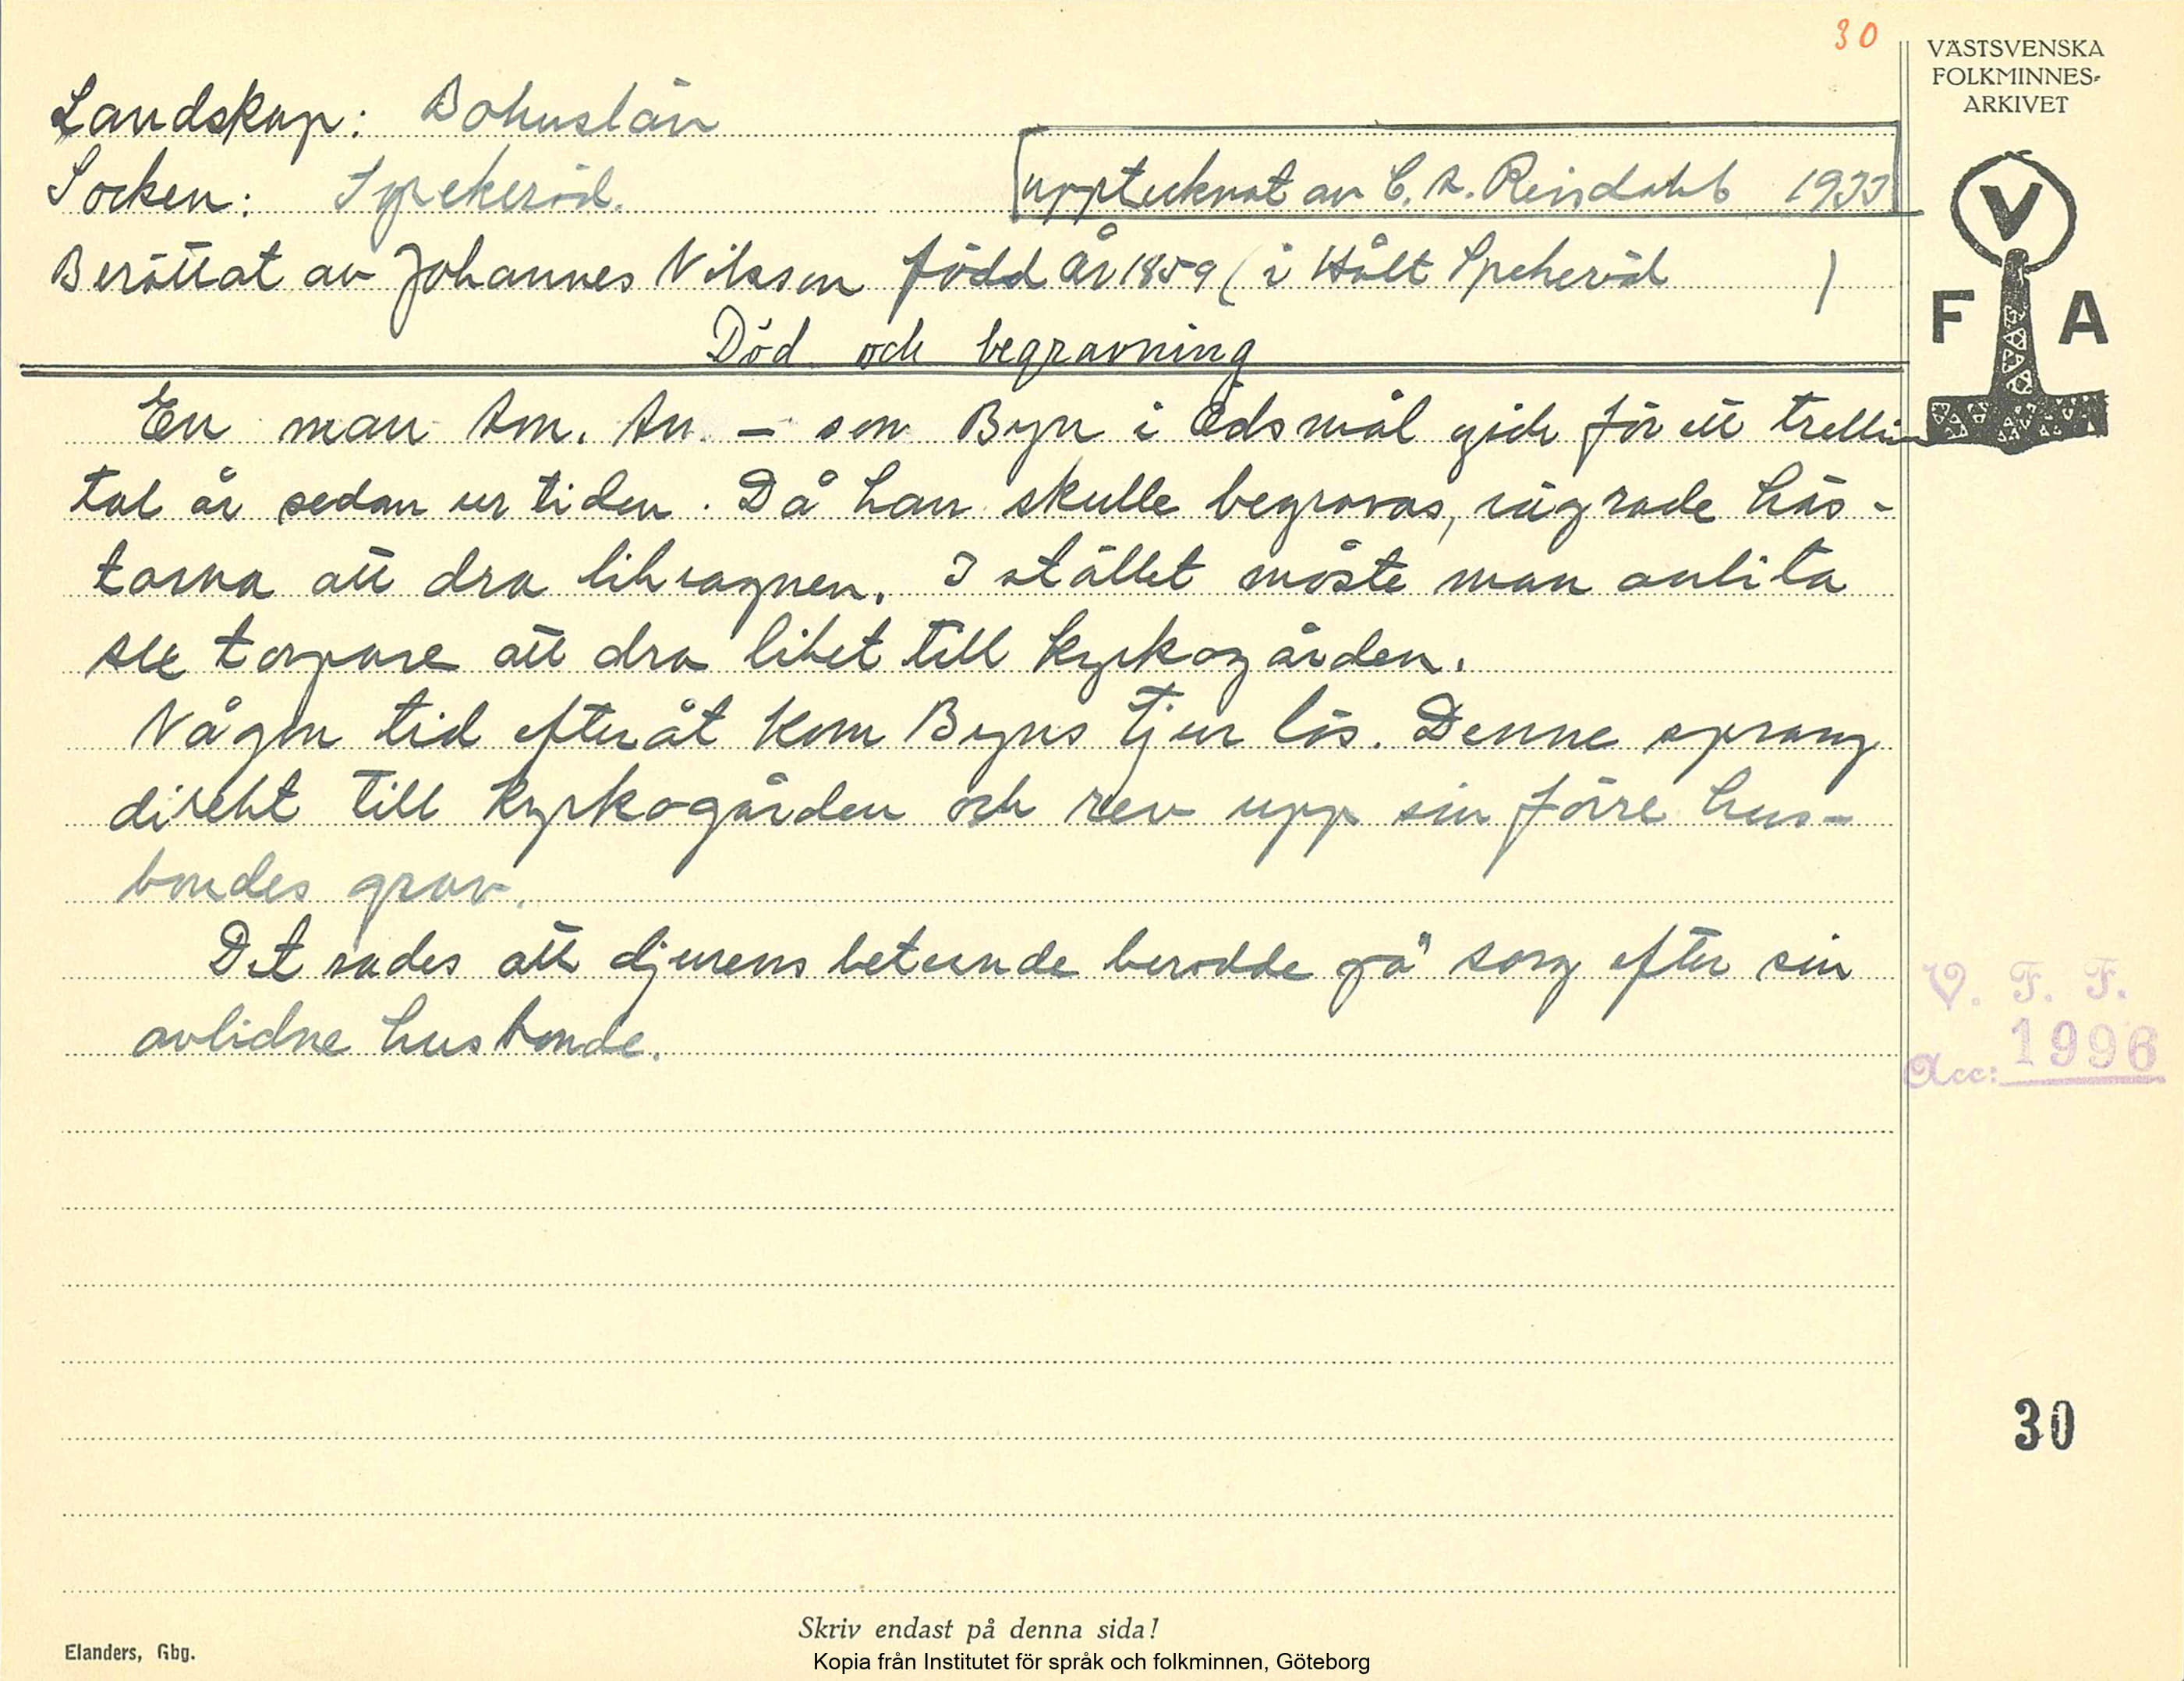 30
VÄSTSVENSKA
FOLKMINNES-
ARKIVET
Landskap: Bohuslän
Socken: Spekeröd.
upptecknat av C. A. Reisdahl 1933
Berättat av Johannes Nilsson född år 1859 (i Hält Spekeröd )
V
F A
Död och begravning
En man An. An. – son Byn i Ödsmål gick för ett trettio
tal år sedan ur tiden. Då han skulle begravas, vägrade häs-
tarna att dra likvagnen. I stället måste man anlita
sex torpare att dra liket till kyrkogården.
Någon tid efteråt kom Byns tjur lös. Denne sprang
direkt till kyrkogården och rev upp sin förre hus-
bondes grav.
Det sades att djurens beteende berodde på sorg efter sin
avlidne husbonde.
V. F. F.
Acc: 1996
30
Skriv endast på denna sida!
Elanders, Gbg.
Kopia från Institutet för språk och folkminnen, Göteborg